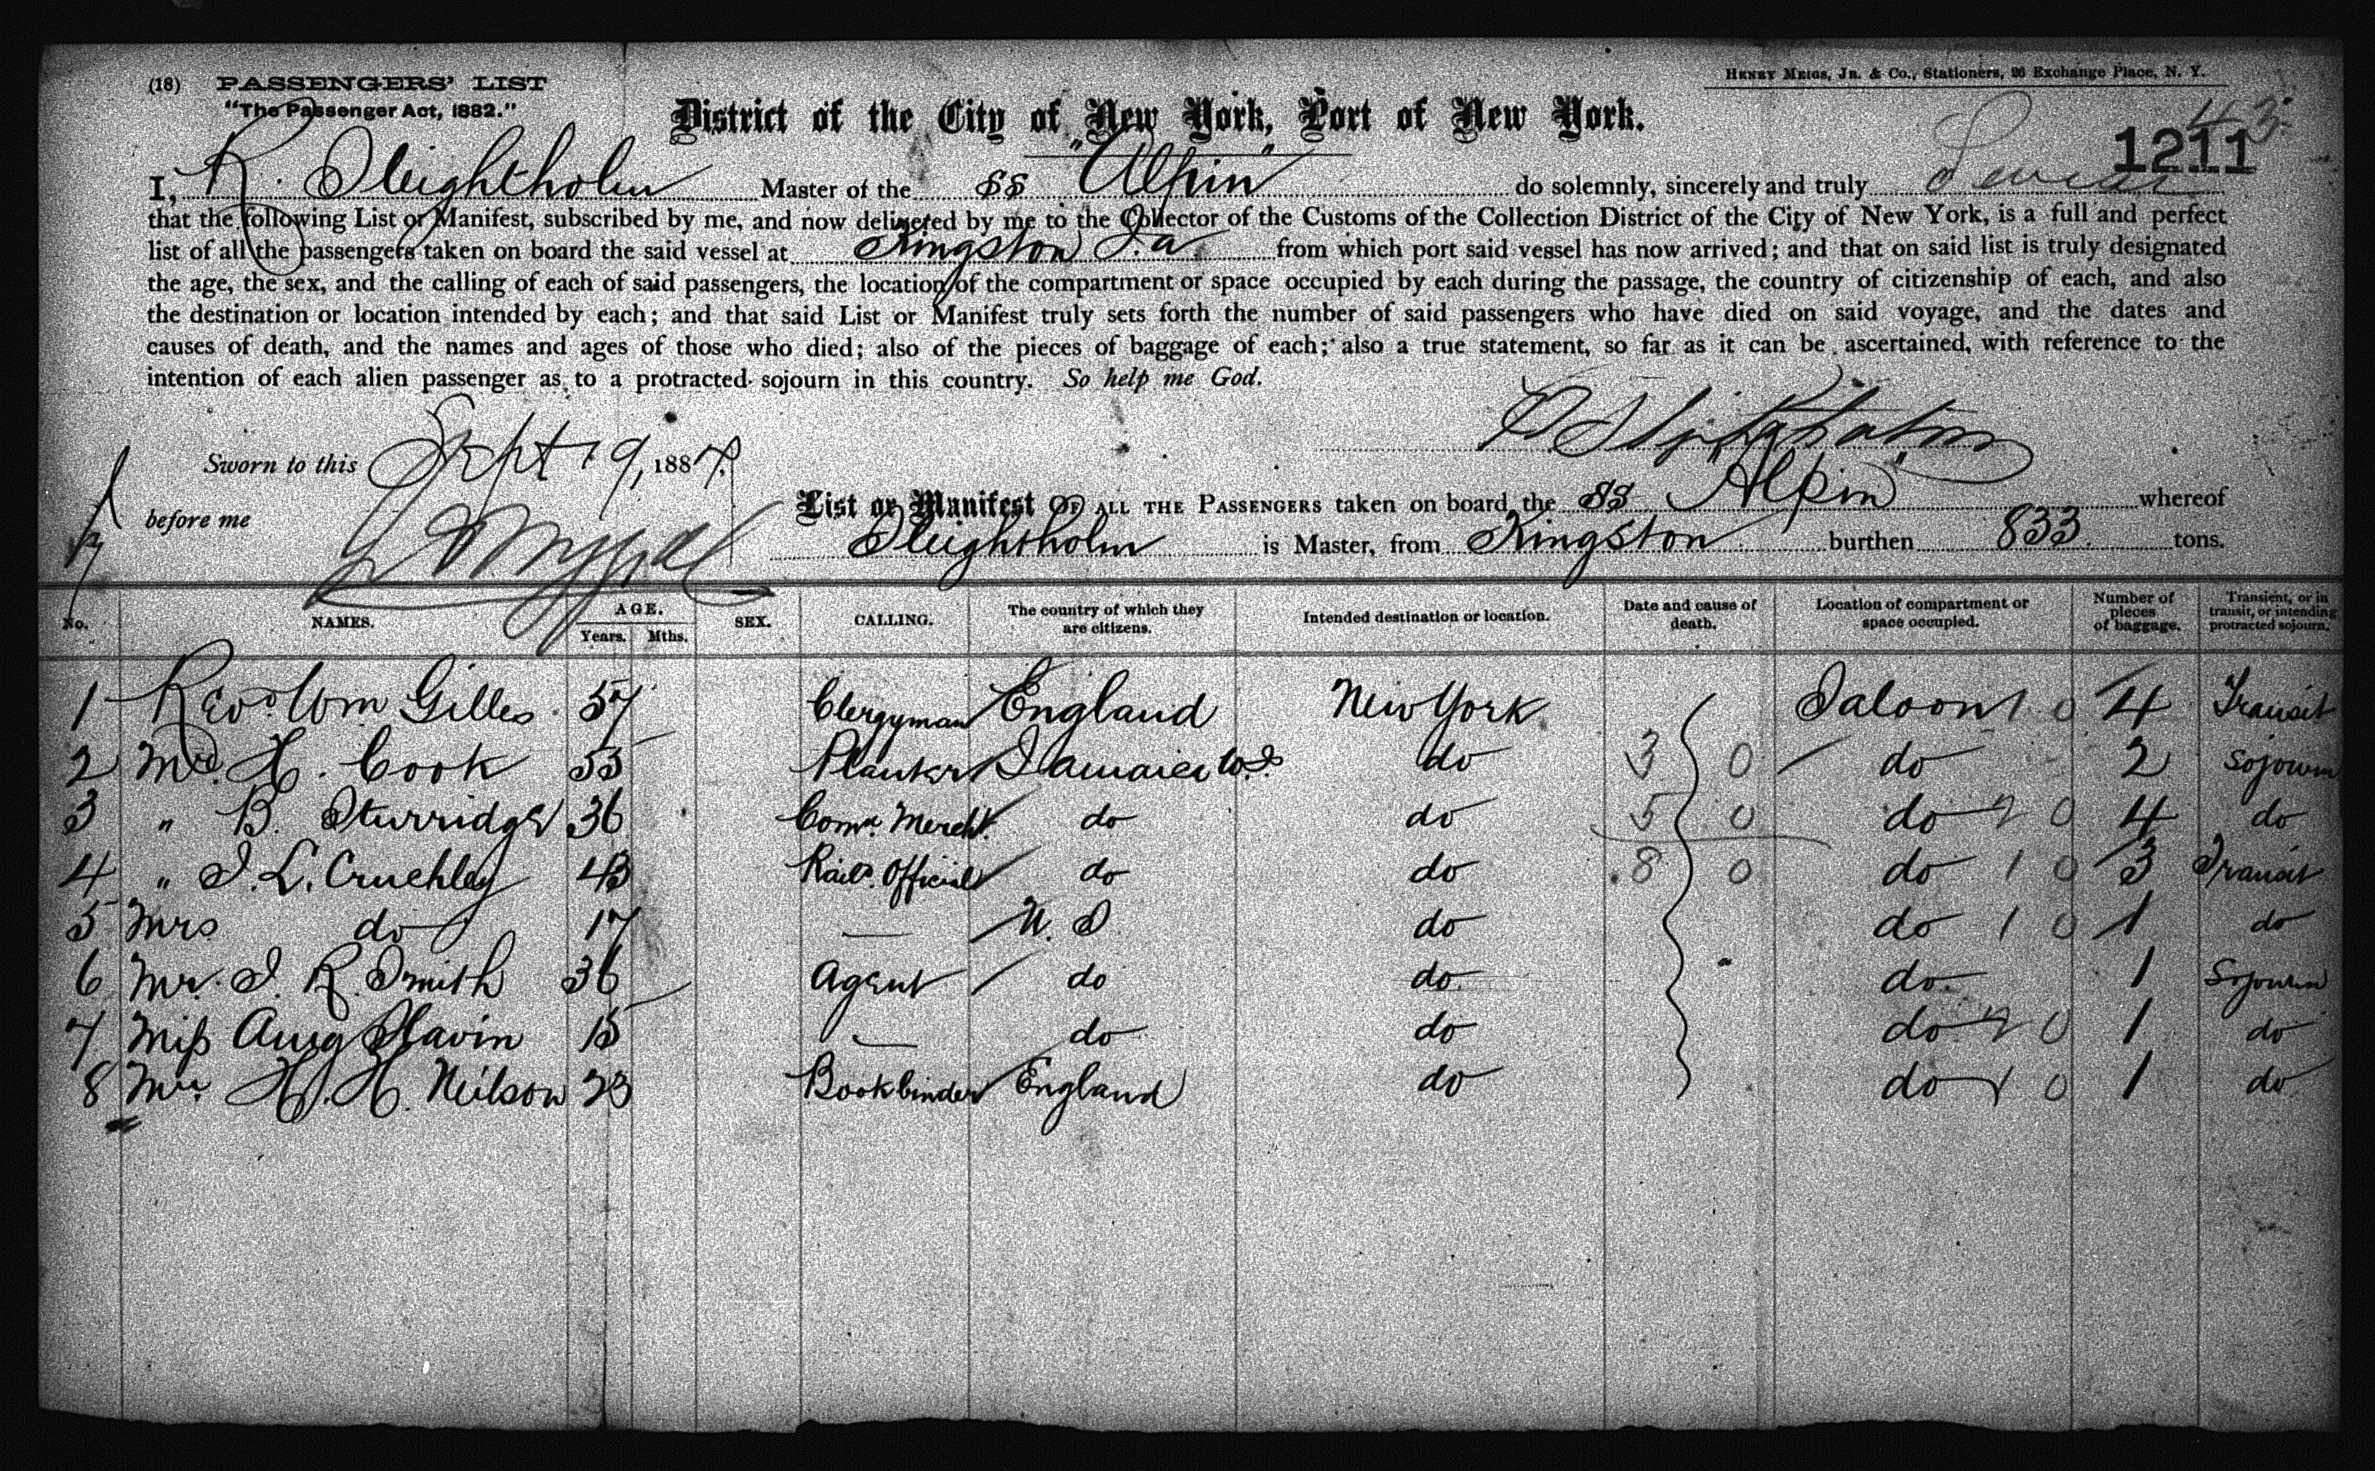 (18) PASSENGERS' LIST
HENRY MEIGS, JR. & CO., Stationers, 96 Exchange Place, N. Y.
"The Passenger Act, 1882."
District of the City of New York, Port of New York.
43
1211
I, R. Sleightholm Master of the SS "Alpin" do solemnly, sincerely and truly Swear
that the following List or Manifest, subscribed by me, and now delivered by me to the Collector of the Customs of the Collection District of the City of New York, is a full and perfect
list of all the passengers taken on board the said vessel at Kingston Ja from which port said vessel has now arrived; and that on said list is truly designated
the age, the sex, and the calling of each of said passengers, the location of the compartment or space occupied by each during the passage, the country of citizenship of each, and also
the destination or location intended by each; and that said List or Manifest truly sets forth the number of said passengers who have died on said voyage, and the dates and
causes of death, and the names and ages of those who died; also of the pieces of baggage of each; also a true statement, so far as it can be ascertained, with reference to the
intention of each alien passenger as to a protracted sojourn in this country. So help me God.
R Sleightholm
Sworn to this Sept 19, 1887.
before me
List or Manifest OF ALL THE PASSENGERS taken on board the SS Alpin" whereof
Sleightholm is Master, from Kingston burthen 833 tons.
No. NAMES. AGE. Years. Mths. SEX. CALLING. The country of which they are citizens. Intended destination or location. Date and cause of death. Location of compartment or space occupied. Number of pieces of baggage. Transient, or in transit, or intending protracted sojourn.
1 Revd Wm Gilles 57 Clergyman England New York Saloon 1 0 4 Transit
2 Mr. H. Cook 53 Planter Jamaica W.I. do 3 0 do 2 Sojourn
3 " B. Sturridge 36 Comn. Mercht. do do 5 0 do 2 0 4 do
4 " J. L. Cruchley 43 Rail. Official do do 8 0 do 1 0 3 Transit
5 Mrs do 17 — U. S. do do 1 0 1 do
6 Mr. J. R. Smith 36 Agent do do do 1 Sojourn
7 Miss Slavin 15 — do do do 2 0 1 do
8 Mr. H. H. Neilson 23 Bookbinder England do do 1 0 1 do